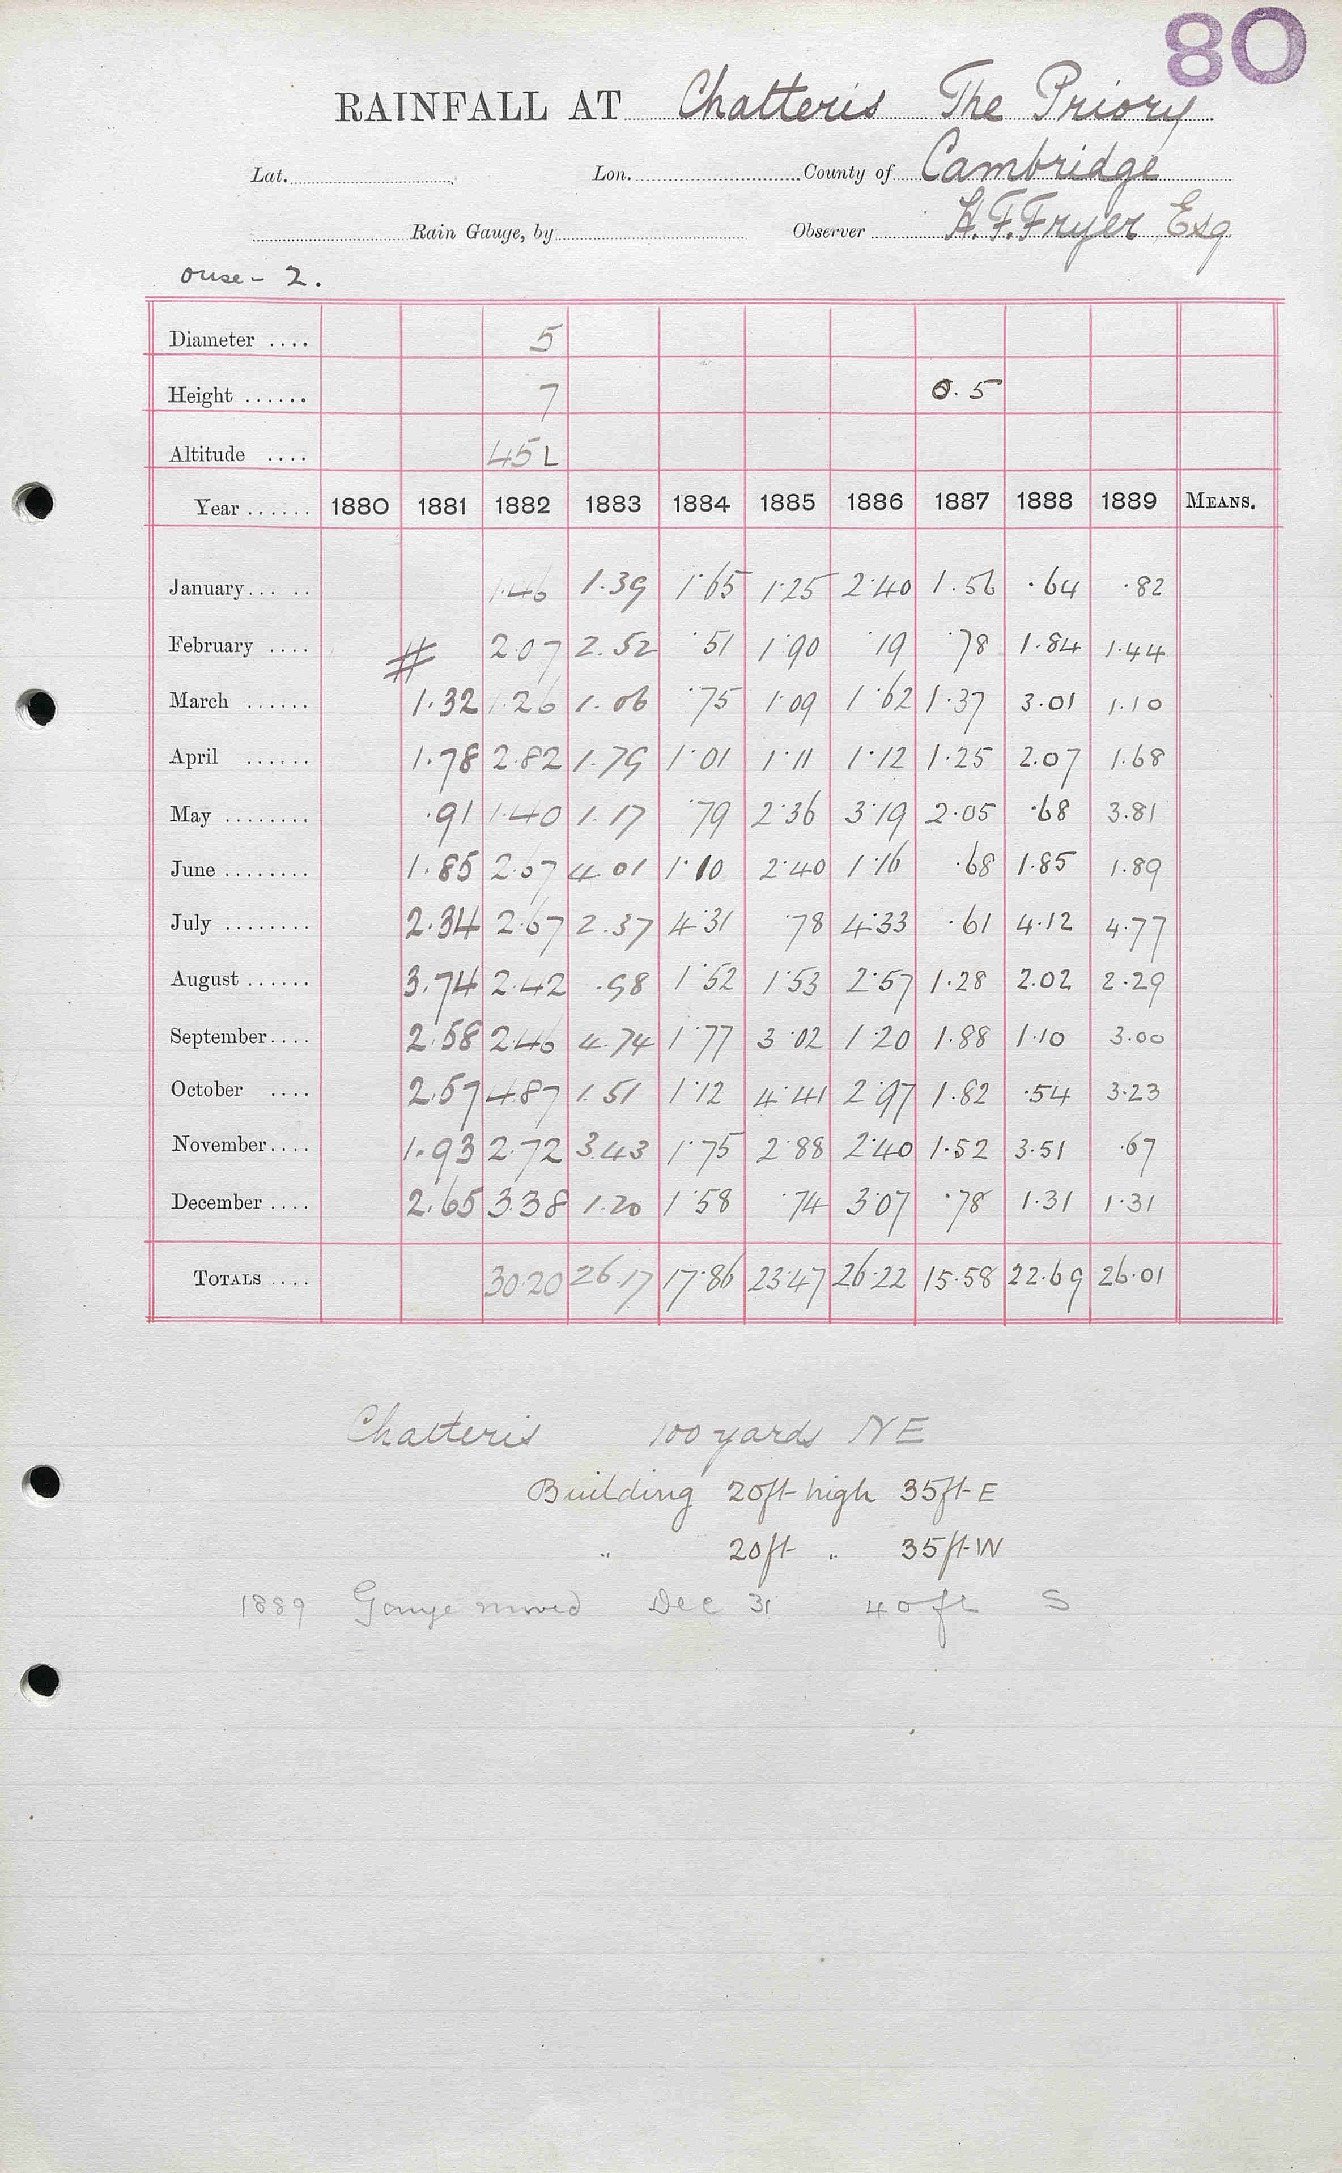 80
RAINFALL AT Chatteris The Priory
Lat. Lon. County of Cambridge
Rain Gauge, by Observer H. F. Fryer Esq
Ouse - 2.
Diameter .... 5
Height ...... 7 0.5
Altitude .... 45 L
Year ...... 1880 1881 1882 1883 1884 1885 1886 1887 1888 1889 MEANS.
January ...... 1.46 1.39 1.65 1.25 2.40 1.56 .64 .82
February .... # 2.07 2.52 .51 1.90 .19 .78 1.84 1.44
March ...... 1.32 1.26 1.06 .75 1.09 1.62 1.37 3.01 1.10
April ...... 1.78 2.82 1.79 1.01 1.11 1.12 1.25 2.07 1.68
May ........ .91 1.40 1.17 .79 2.36 3.19 2.05 .68 3.81
June ........ 1.85 2.67 4.01 1.10 2.40 1.16 .68 1.85 1.89
July ........ 2.34 2.67 2.37 4.31 .78 4.33 .61 4.12 4.77
August ...... 3.74 2.42 .98 1.52 1.53 2.57 1.28 2.02 2.29
September .... 2.58 2.46 4.74 1.77 3.02 1.20 1.88 1.10 3.00
October .... 2.57 4.87 1.51 1.12 4.41 2.97 1.82 .54 3.23
November .... 1.93 2.72 3.43 1.75 2.88 2.40 1.52 3.51 .67
December .... 2.65 3.38 1.20 1.58 .74 3.07 .78 1.31 1.31
TOTALS .... 30.20 26.17 17.86 23.47 26.22 15.58 22.69 26.01
Chatteris 100 yards NE
Building 20ft high 35ft E
" 20ft " 35ft W
1889 Gauge moved Dec 31 40 ft S